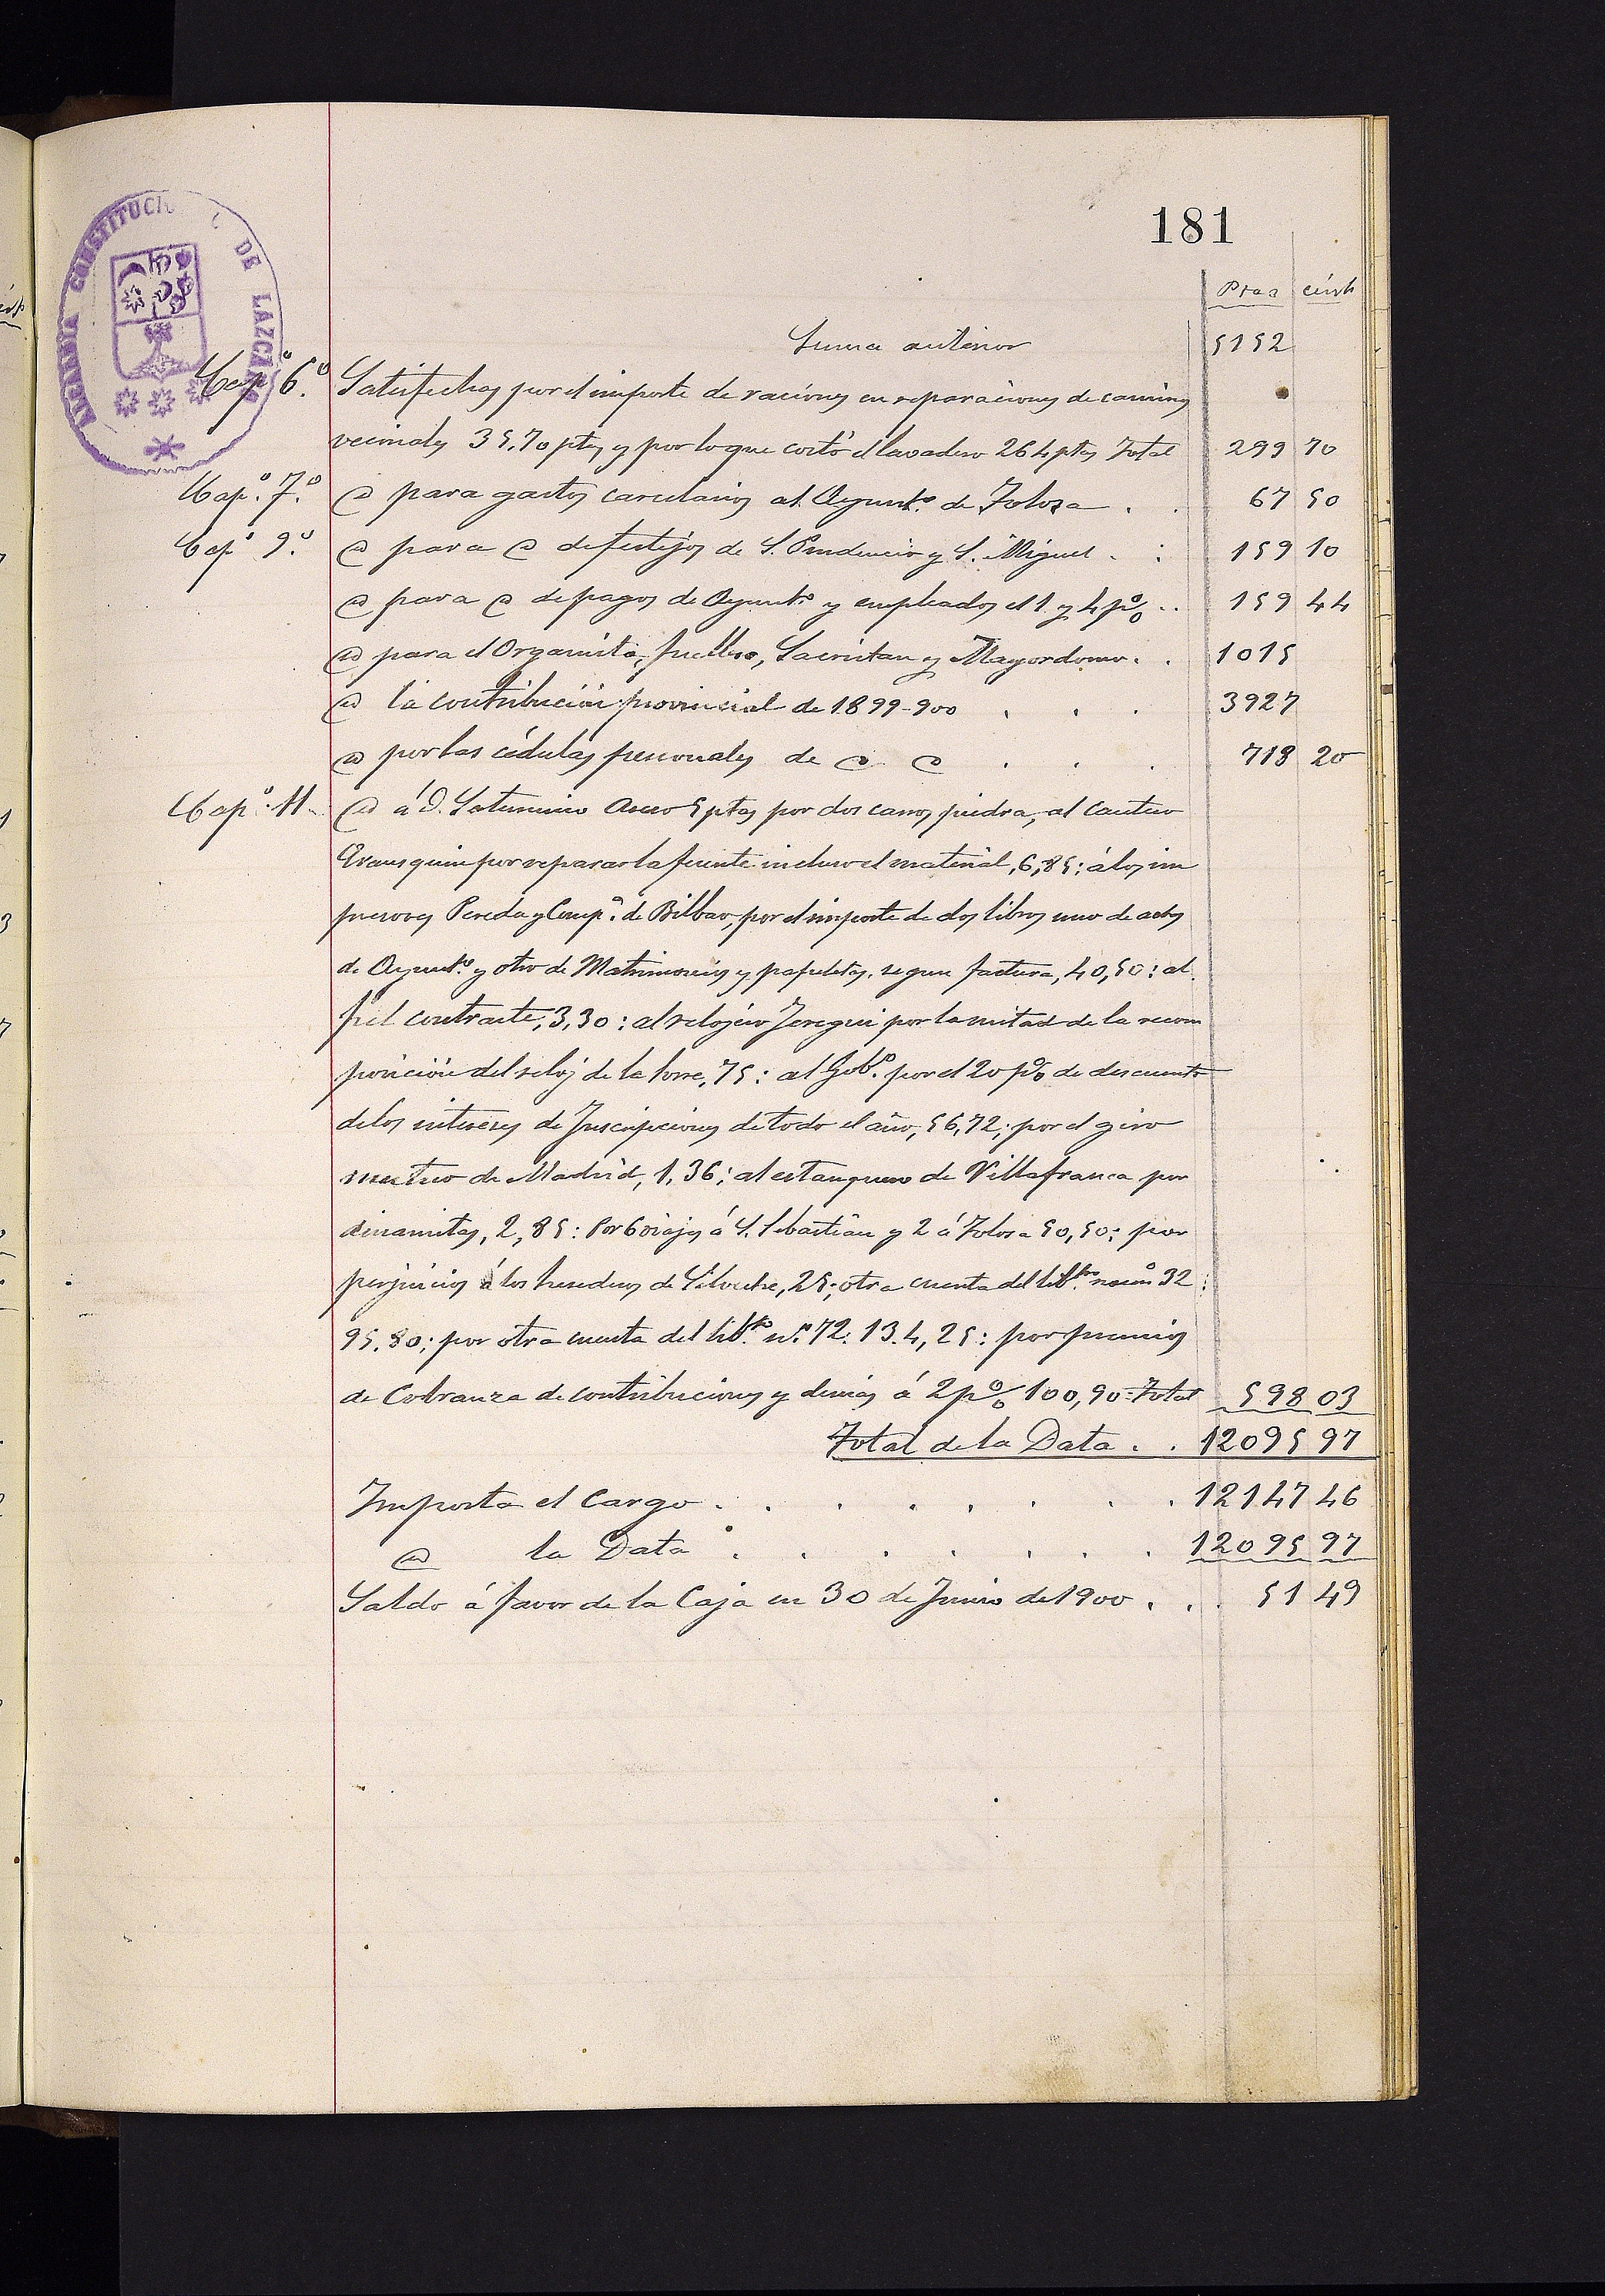 181
ALCALDIA CONSTITUCIONAL DE LAZCANO
Ptas cénts
Suma anterior 5152
Cap.º 6.º Satisfechos por el importe de raciones en reparaciones de caminos
vecinales 35,70 ptas y por lo que costó el lavadero 264 ptas Total 299 70
Cap.º 7.º @ para gastos carcelarios al Ayunt.º de Tolosa . . 67 50
Cap.º 9.º @ para @ de festejos de S. Prudencio y S. Miguel . : 159 10
@ para @ de pagos de Ayunt.º y empleados el 1 y 4 pº/o .. 159 44
@ para el Organista, fuellero, Sacristan y Mayordomo . . 1015
@ la contribución provincial de 1899-900 . . . 3927
@ por las cédulas personales de @ @ . . . 718 20
Cap.º 11 @ á D. Saturnino 5 ptas por dos carros piedra, al cantero
por reparar la fuente incluso el material, 6,85: á los im
presores Pereda y Comp.ª de Bilbao, por el importe de dos libros uno de actas
de Ayunt.º y otro de Matrimonios y papeletas, segun factura, 40,50: al
fiel contraste, 3,30: al relojero Jeregui por la mitad de la recom
posición del reloj de la torre, 75: al Gob.º por el 20 pº/o de descuento
de los intereses de Inscripciones de todo el año, 56,72; por el giro
mutuo de Madrid, 1,36; al estanquero de Villafranca por
dinamitas, 2,85: Por 6 viajes á S. Sebastián y 2 á Tolosa 50,50: por
perjuicios á los herederos de 25; otra cuenta del lib.to num.º 32:
95,80; por otra cuenta del lib.to n.º 72. 134,25: por premios
de Cobranza de contribuciones y demás á 2 pº/o 100,90 = Total 598 03
Total de la Data . . 12095 97
Importa el Cargo . . . . . . . . 12147 46
@ la Data . . . . . . . 12095 97
Saldo á favor de la Caja en 30 de Junio de 1900 . . . 51 49